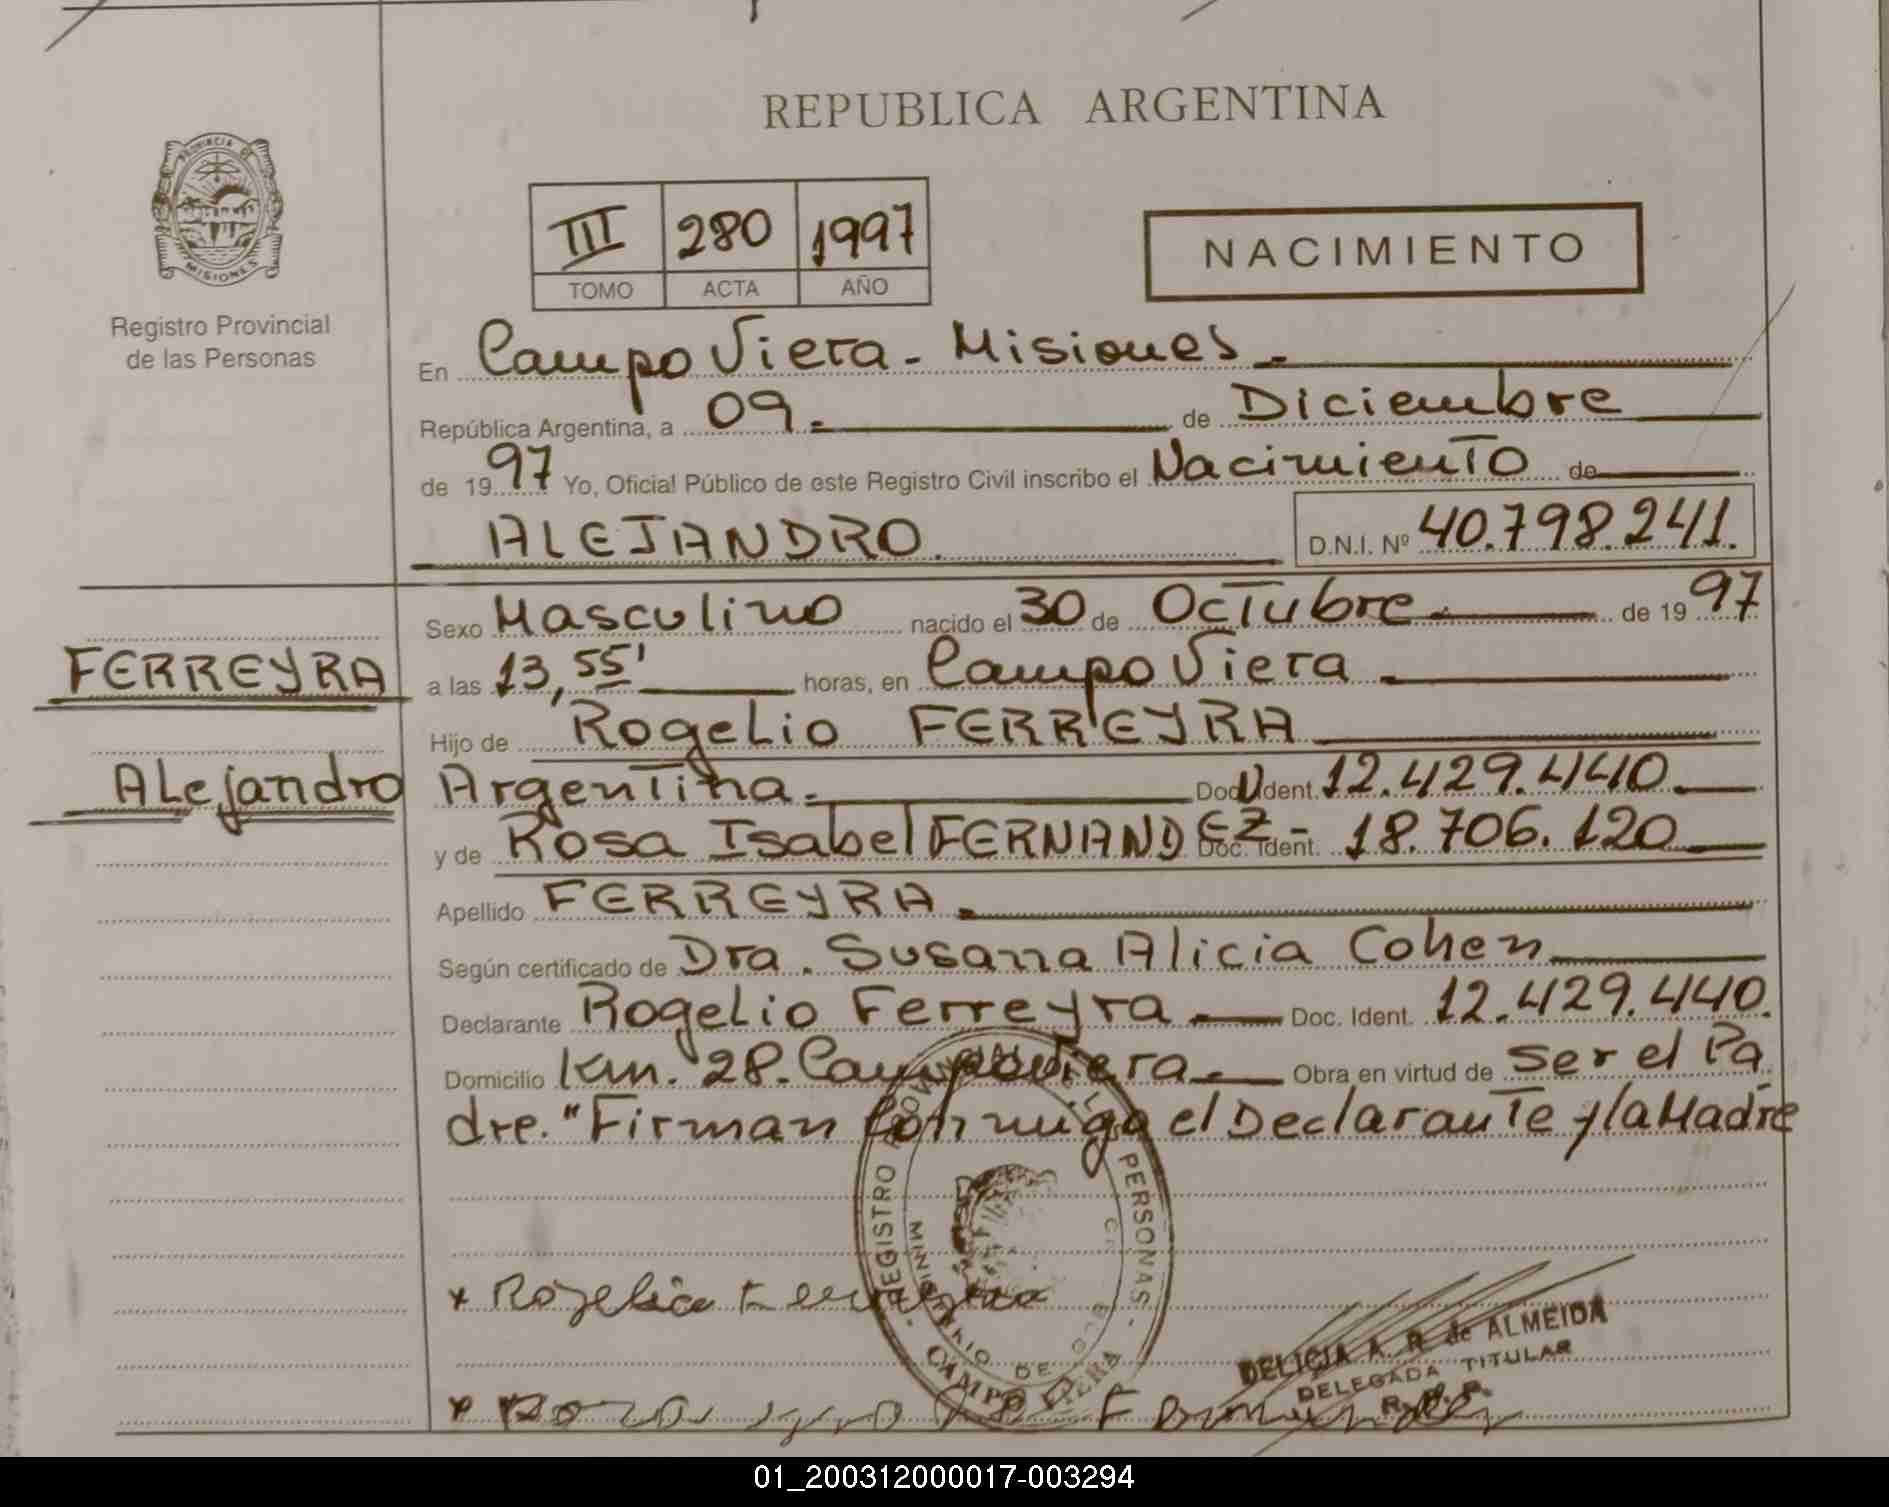 REPUBLICA ARGENTINA
PROVINCIA DE
MISIONES
Registro Provincial
de las Personas
III 280 1997
TOMO ACTA AÑO
NACIMIENTO
En Campo Viera - Misiones -
República Argentina, a 09. de Diciembre
de 1997 Yo, Oficial Público de este Registro Civil inscribo el Nacimiento de
ALEJANDRO. D.N.I. Nº 40.798.241.
Sexo Masculino nacido el 30 de Octubre de 1997
FERREYRA
a las 13,55' horas, en Campo Viera
Hijo de Rogelio FERREYRA
Alejandro
Argentina. Doc. U Ident. 12.429.440
y de Rosa Isabel FERNANDEZ - Doc. Ident. 18.706.120
Apellido FERREYRA
Según certificado de Dra. Susana Alicia Cohen
Declarante Rogelio Ferreyra Doc. Ident. 12.429.440.
Domicilio Km. 28. Campo Viera Obra en virtud de ser el Pa
dre. "Firman Conmigo el Declarante y la Madre
REGISTRO PERSONAS
CAMPO VIERA
x Rogelio Ferreyra
DELICIA A. R. de ALMEIDA
DELEGADA TITULAR
R. P. P.
01_200312000017-003294